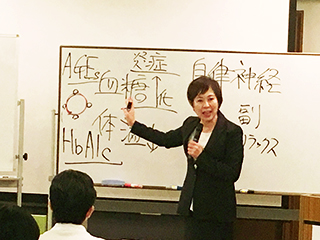 AGEs
炎症
血糖↑
化
体温↓
HbA1c
自律神経
副
ラックス